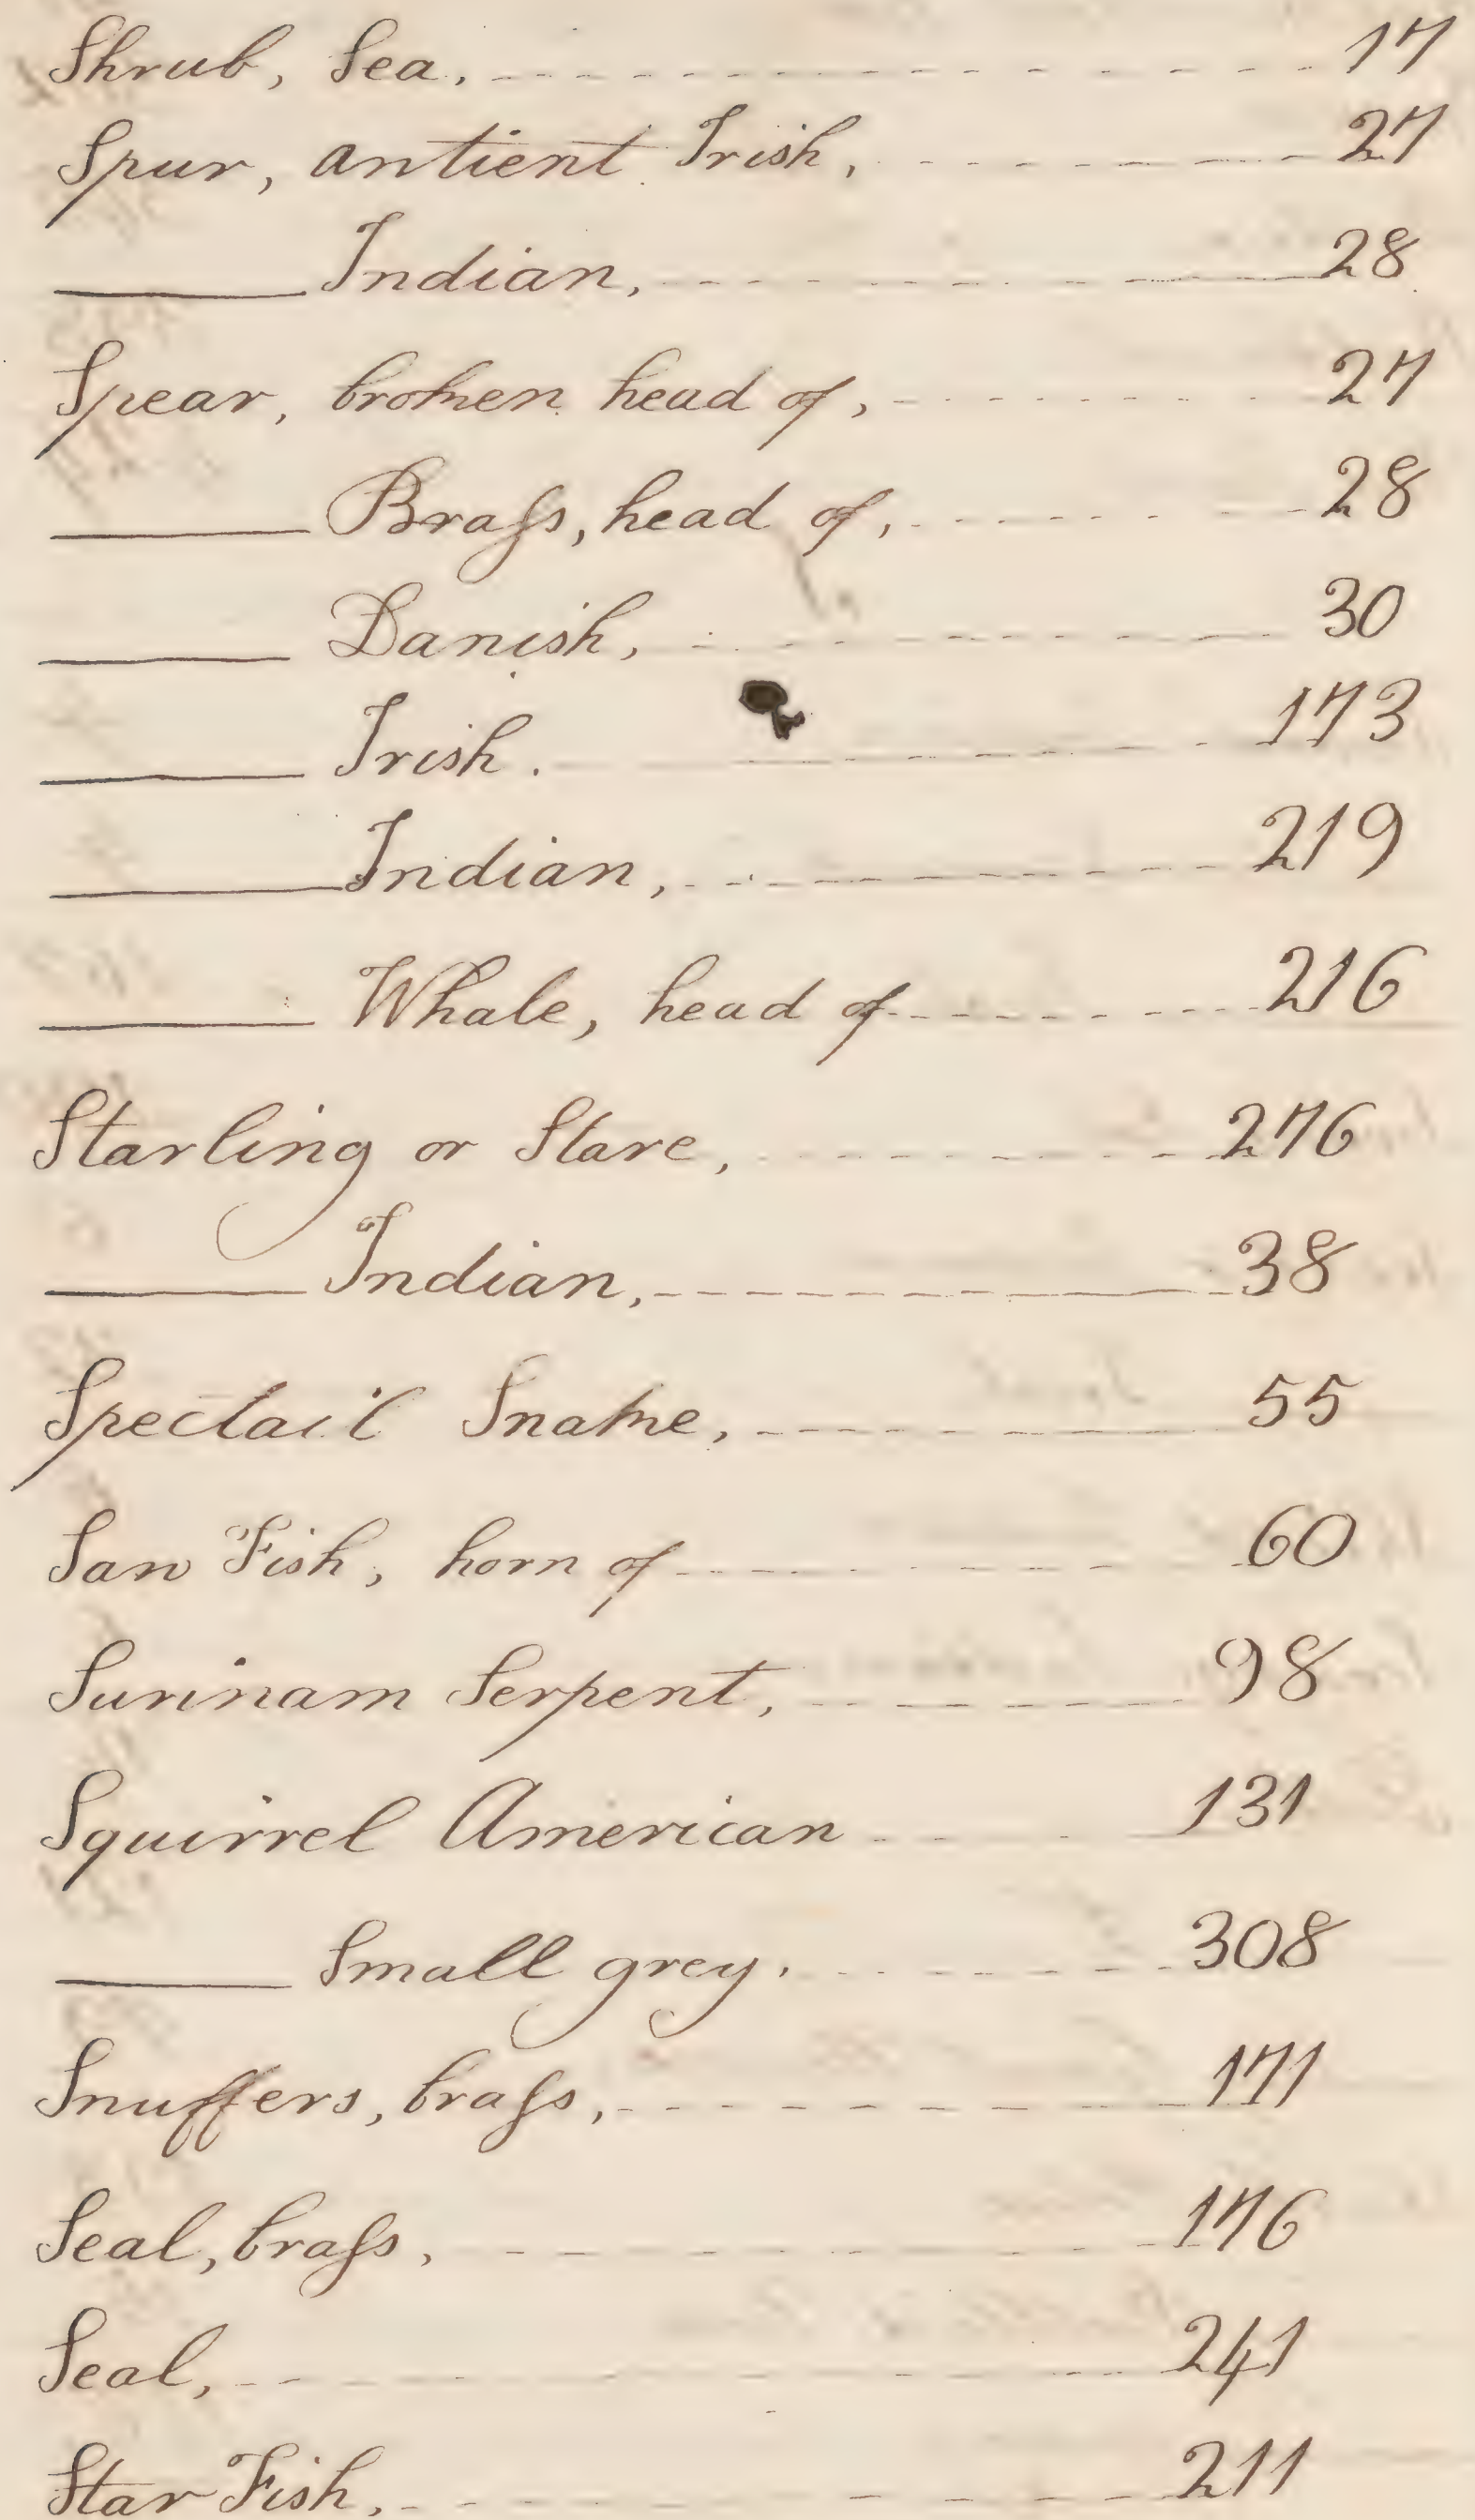 Shrub, Sea, - - - - - - - - - - - - - - 17
Spur, antient Irish, - - - - - - 27
——— Indian, - - - - - - - - 28
Spear, broken head of, - - - - - - - 27
——— Braſs, head of, - - - - - - - 28
——— Danish, - - - - - - - - - 30
——— Irish. - - - - - - - - 173
——— Indian, - - - - - - - - - 219
——— Whale, head of - - - - - - - - 216
Starling or Stare, - - - - - - - - 276
——— Indian, - - - - - - - - - 38
Spectacil Snake, - - - - - - - 55
Saw Fish, horn of - - - - - - - 60
Surinam Serpent, - - - - - - - 98
Squirrel American - - - - 131
——— Small grey. - - - - - - - 308
Snuffers, braſs, - - - - - - - - - 171
Seal, braſs, - - - - - - - - 176
Seal, - - - - - - - - 241
Star Fish, - - - - - - - 211